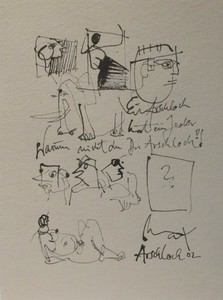 Ein Arschloch
hat ein Jeder
Warum nicht du Du Arschloch?!
?
Arschloch 02